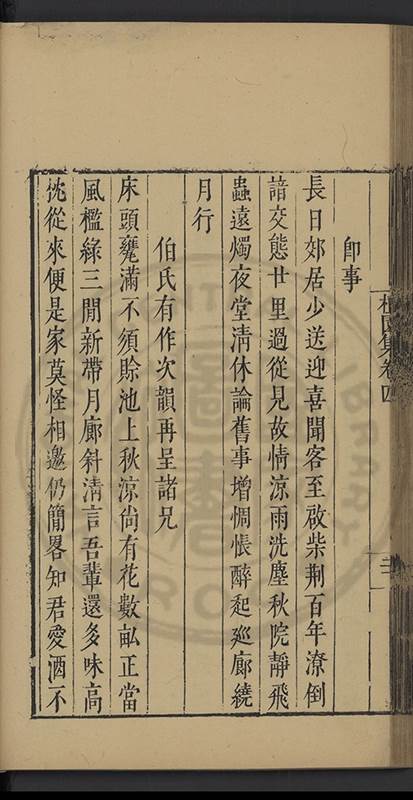 即事
長日郊居少送迎喜聞客至啟柴荆百年潦倒
諳交態廿里過從見故情涼雨洗塵秋院靜飛
蟲遶燭夜堂清休論舊事增惆悵醉起廵廊繞
月行
伯氏有作次韻再呈諸兄
床頭甕滿不須賒池上秋涼尚有花數畝正當
風檻綠三閒新帶月廊斜清言吾輩還多味高
枕從來便是家莫怪相邀仍簡畧知君愛酒不
集卷四